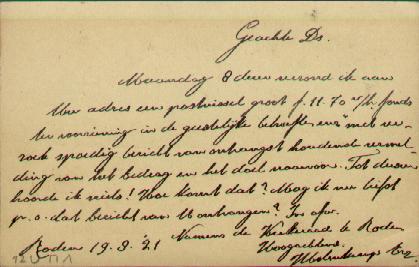 Geachte Ds.
Maandag 8 dezer verzond ik aan
Uw adres een postwissel groot f. 11.70 v/h. fonds
ter voorziening in de geestelijke behoeften enz. met ver-
zoek spoedig bericht van ontvangst houdend vermel-
ding van het bedrag en het doel waarvoor. Tot dusver
hoorde ik niets! Hoe komt dat? Mag ik nu liefst
p. o. dat bericht van U ontvangen?
Namens de Kerkeraad te Roden
Roden 19.9.'21 Hoogachtend